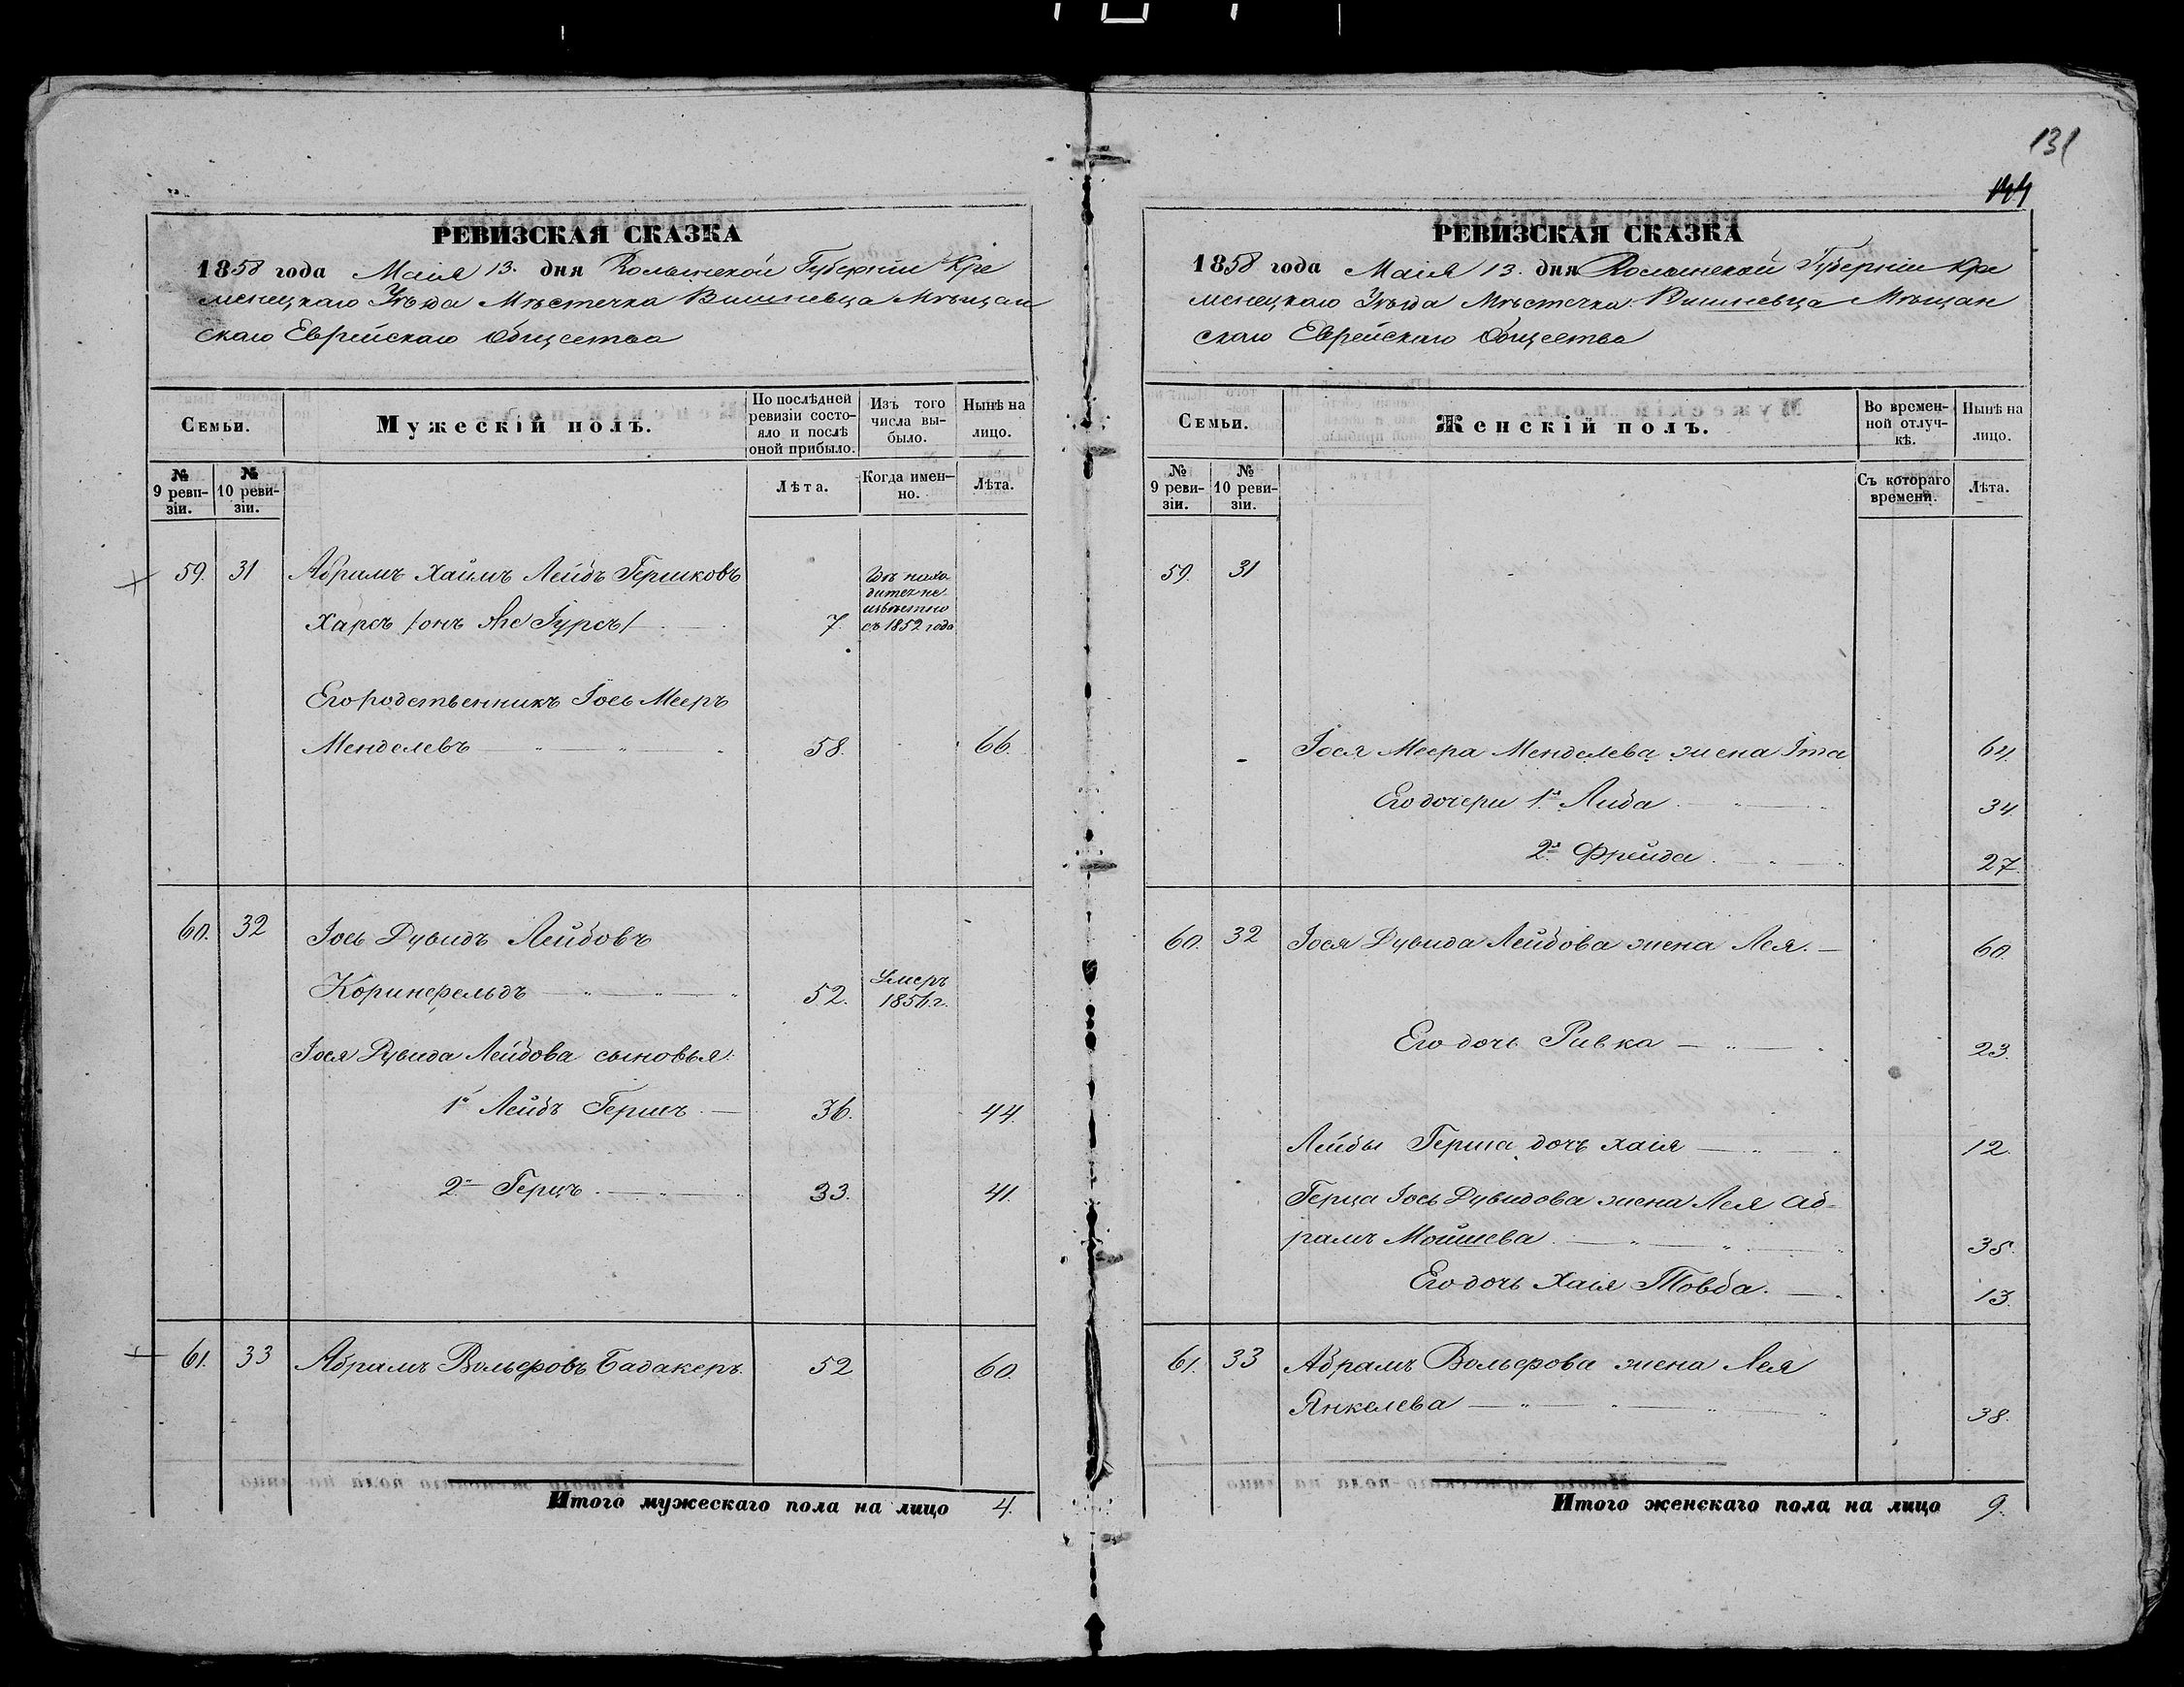 131
144
РЕВИЗСКАЯ СКАЗКА
1858 года Маія 13. дня Волынской Губерніи Кре
менецкаго Уѣзда Мѣстечка Вишневца Мѣщан
скаго Еврейскаго Общества
Семьи.
Мужескій полъ.
По послѣдней ревизіи состояло и послѣ оной прибыло.
Изъ того числа выбыло.
Нынѣ на лицо.
№ 9 ревизіи.
№ 10 ревизіи.
Лѣта.
Когда именно.
Лѣта.
59. 31 Абрамъ Хаимъ Лейбъ Гершковъ
Харсъ /онъ же Гурсъ/ 7.
Гдѣ нахо-
дится не-
извѣстно
съ 1852 года
Его родственникъ Іось Мееръ
Менделевъ 58. 66.
60. 32 Іось Дувидъ Лейбовъ
Коринфельдъ 52. Умеръ 1856 г.
Іося Дувида Лейбова сыновья:
1й Лейбъ Гершъ. 36. 44.
2й Герцъ. 33. 41.
61. 33 Абрамъ Вольфовъ Бадакеръ. 52 60.
Итого мужескаго пола на лицо 4.
РЕВИЗСКАЯ СКАЗКА
1858 года Маія 13. дня Волынской Губерніи Кре
менецкаго Уѣзда Мѣстечка Вишневца Мѣщан
скаго Еврейскаго Общества
Семьи.
Женскій полъ.
Во временной отлучкѣ.
Нынѣ на лицо.
№ 9 ревизіи.
№ 10 ревизіи.
Съ котораго времени.
Лѣта.
59. 31
Іося Меера Менделева жена Ита 64.
Его дочери 1я Либа 34
2я Фрейда 27.
60. 32 Іося Дувида Лейбова жена Лея. 60.
Его дочь Ривка 23.
Лейбы Герша дочь Хаія 12.
Герца Іось Дувидова жена Лея Аб-
рамъ Мошкова 35.
Его дочь Хаія Товба. 13.
61. 33 Абрамъ Вольфова жена Лея
Янкелева 38.
Итого женскаго пола на лицо 9.